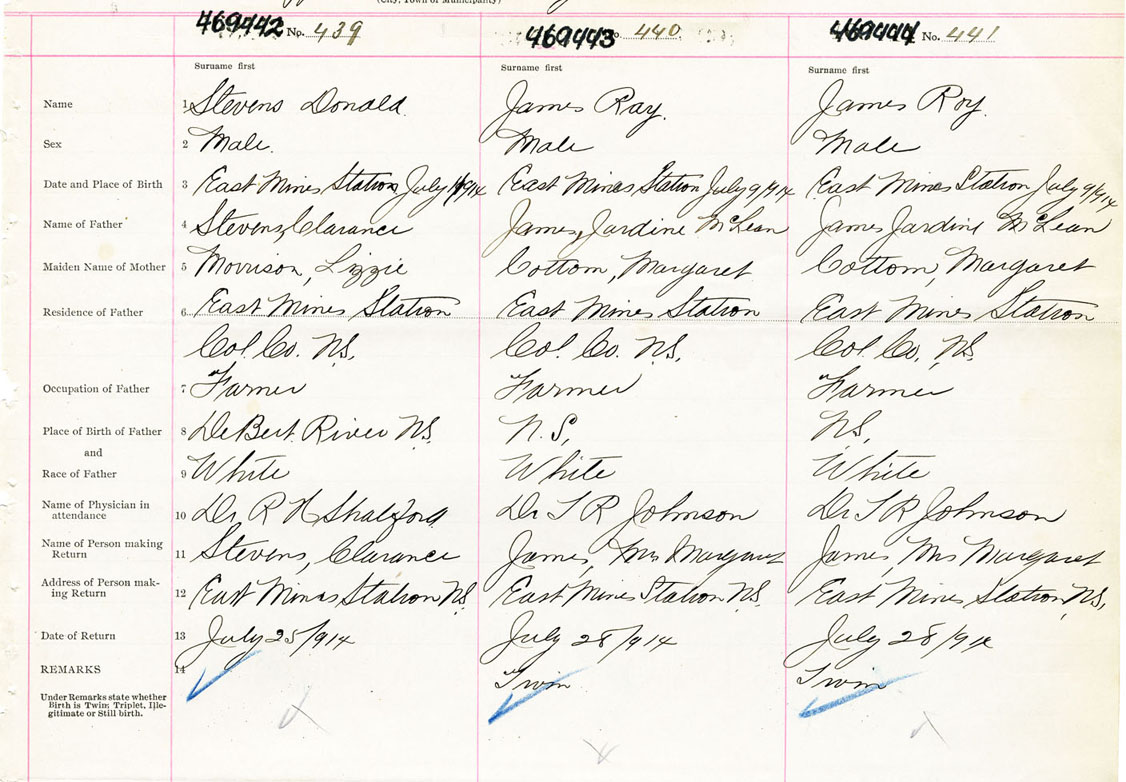 (City, Town or Municipality)
469442 No. 439 469443 440 469444 No. 441
Surname first Surname first Surname first
Name 1 Stevens Donald. James Ray. James Roy.
Sex 2 Male. Male Male
Date and Place of Birth 3 East Mines Station July /914 East Mines Station July 9/914 East Mines Station July 9/914
Name of Father 4 Stevens, Clarance James, Jardine McLean James Jardine McLean
Maiden Name of Mother 5 Morrison, Lizzie Cottom, Margaret Cottom, Margaret
Residence of Father 6 East Mines Station East Mines Station East Mines Station
Col. Co. N.S. Col. Co. N.S. Col. Co. N.S.
Occupation of Father 7 Farmer Farmer Farmer
Place of Birth of Father 8 DeBert River N.S. N.S. N.S.
and
Race of Father 9 White White White
Name of Physician in
attendance 10 Dr R H Dr T R Johnson Dr T R Johnson
Name of Person making
Return 11 Stevens, Clarance James, Mrs Margaret James, Mrs Margaret
Address of Person mak-
ing Return 12 East Mines Station N.S. East Mines Station N.S. East Mines Station, N.S.
Date of Return 13 July 25/914 July 28/914 July 28/914
REMARKS 14 Twin Twin
Under Remarks state whether
Birth is Twin; Triplet, Ille-
gitimate or Still birth.